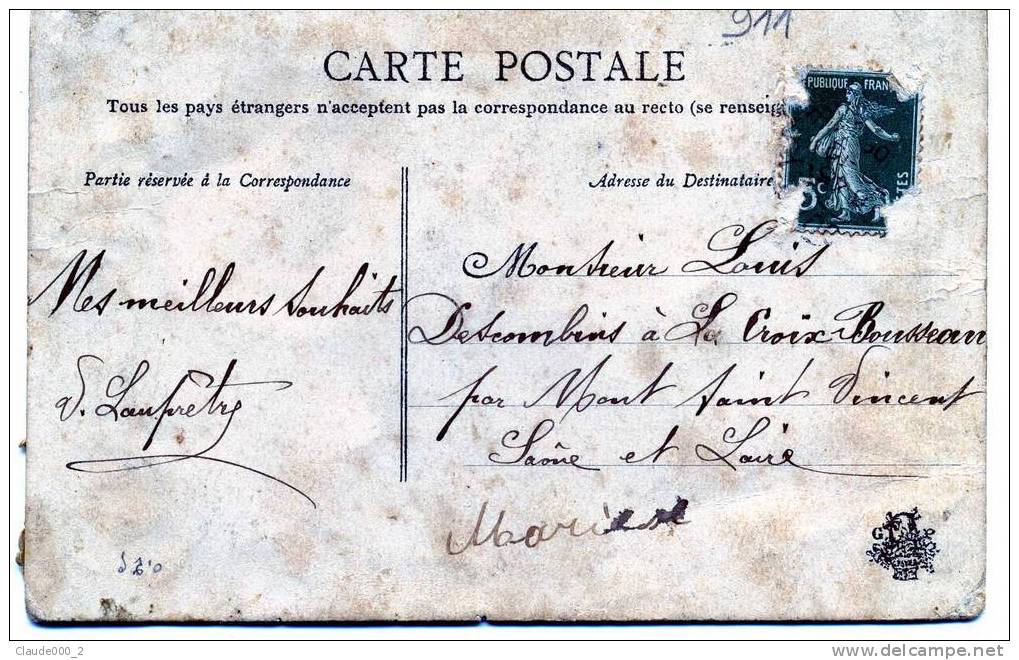 911
CARTE POSTALE
Tous les pays étrangers n'acceptent pas la correspondance au recto (se renseig
PUBLIQUE FRAN
5c
TES
Partie réservée à la Correspondance
Adresse du Destinataire
Mes meilleurs souhaits
Monsieur Louis
Descombins à La Croix-Bousseau
par Mont Saint Vincent
Saône et Loire
Claude000_2
delcampe.net